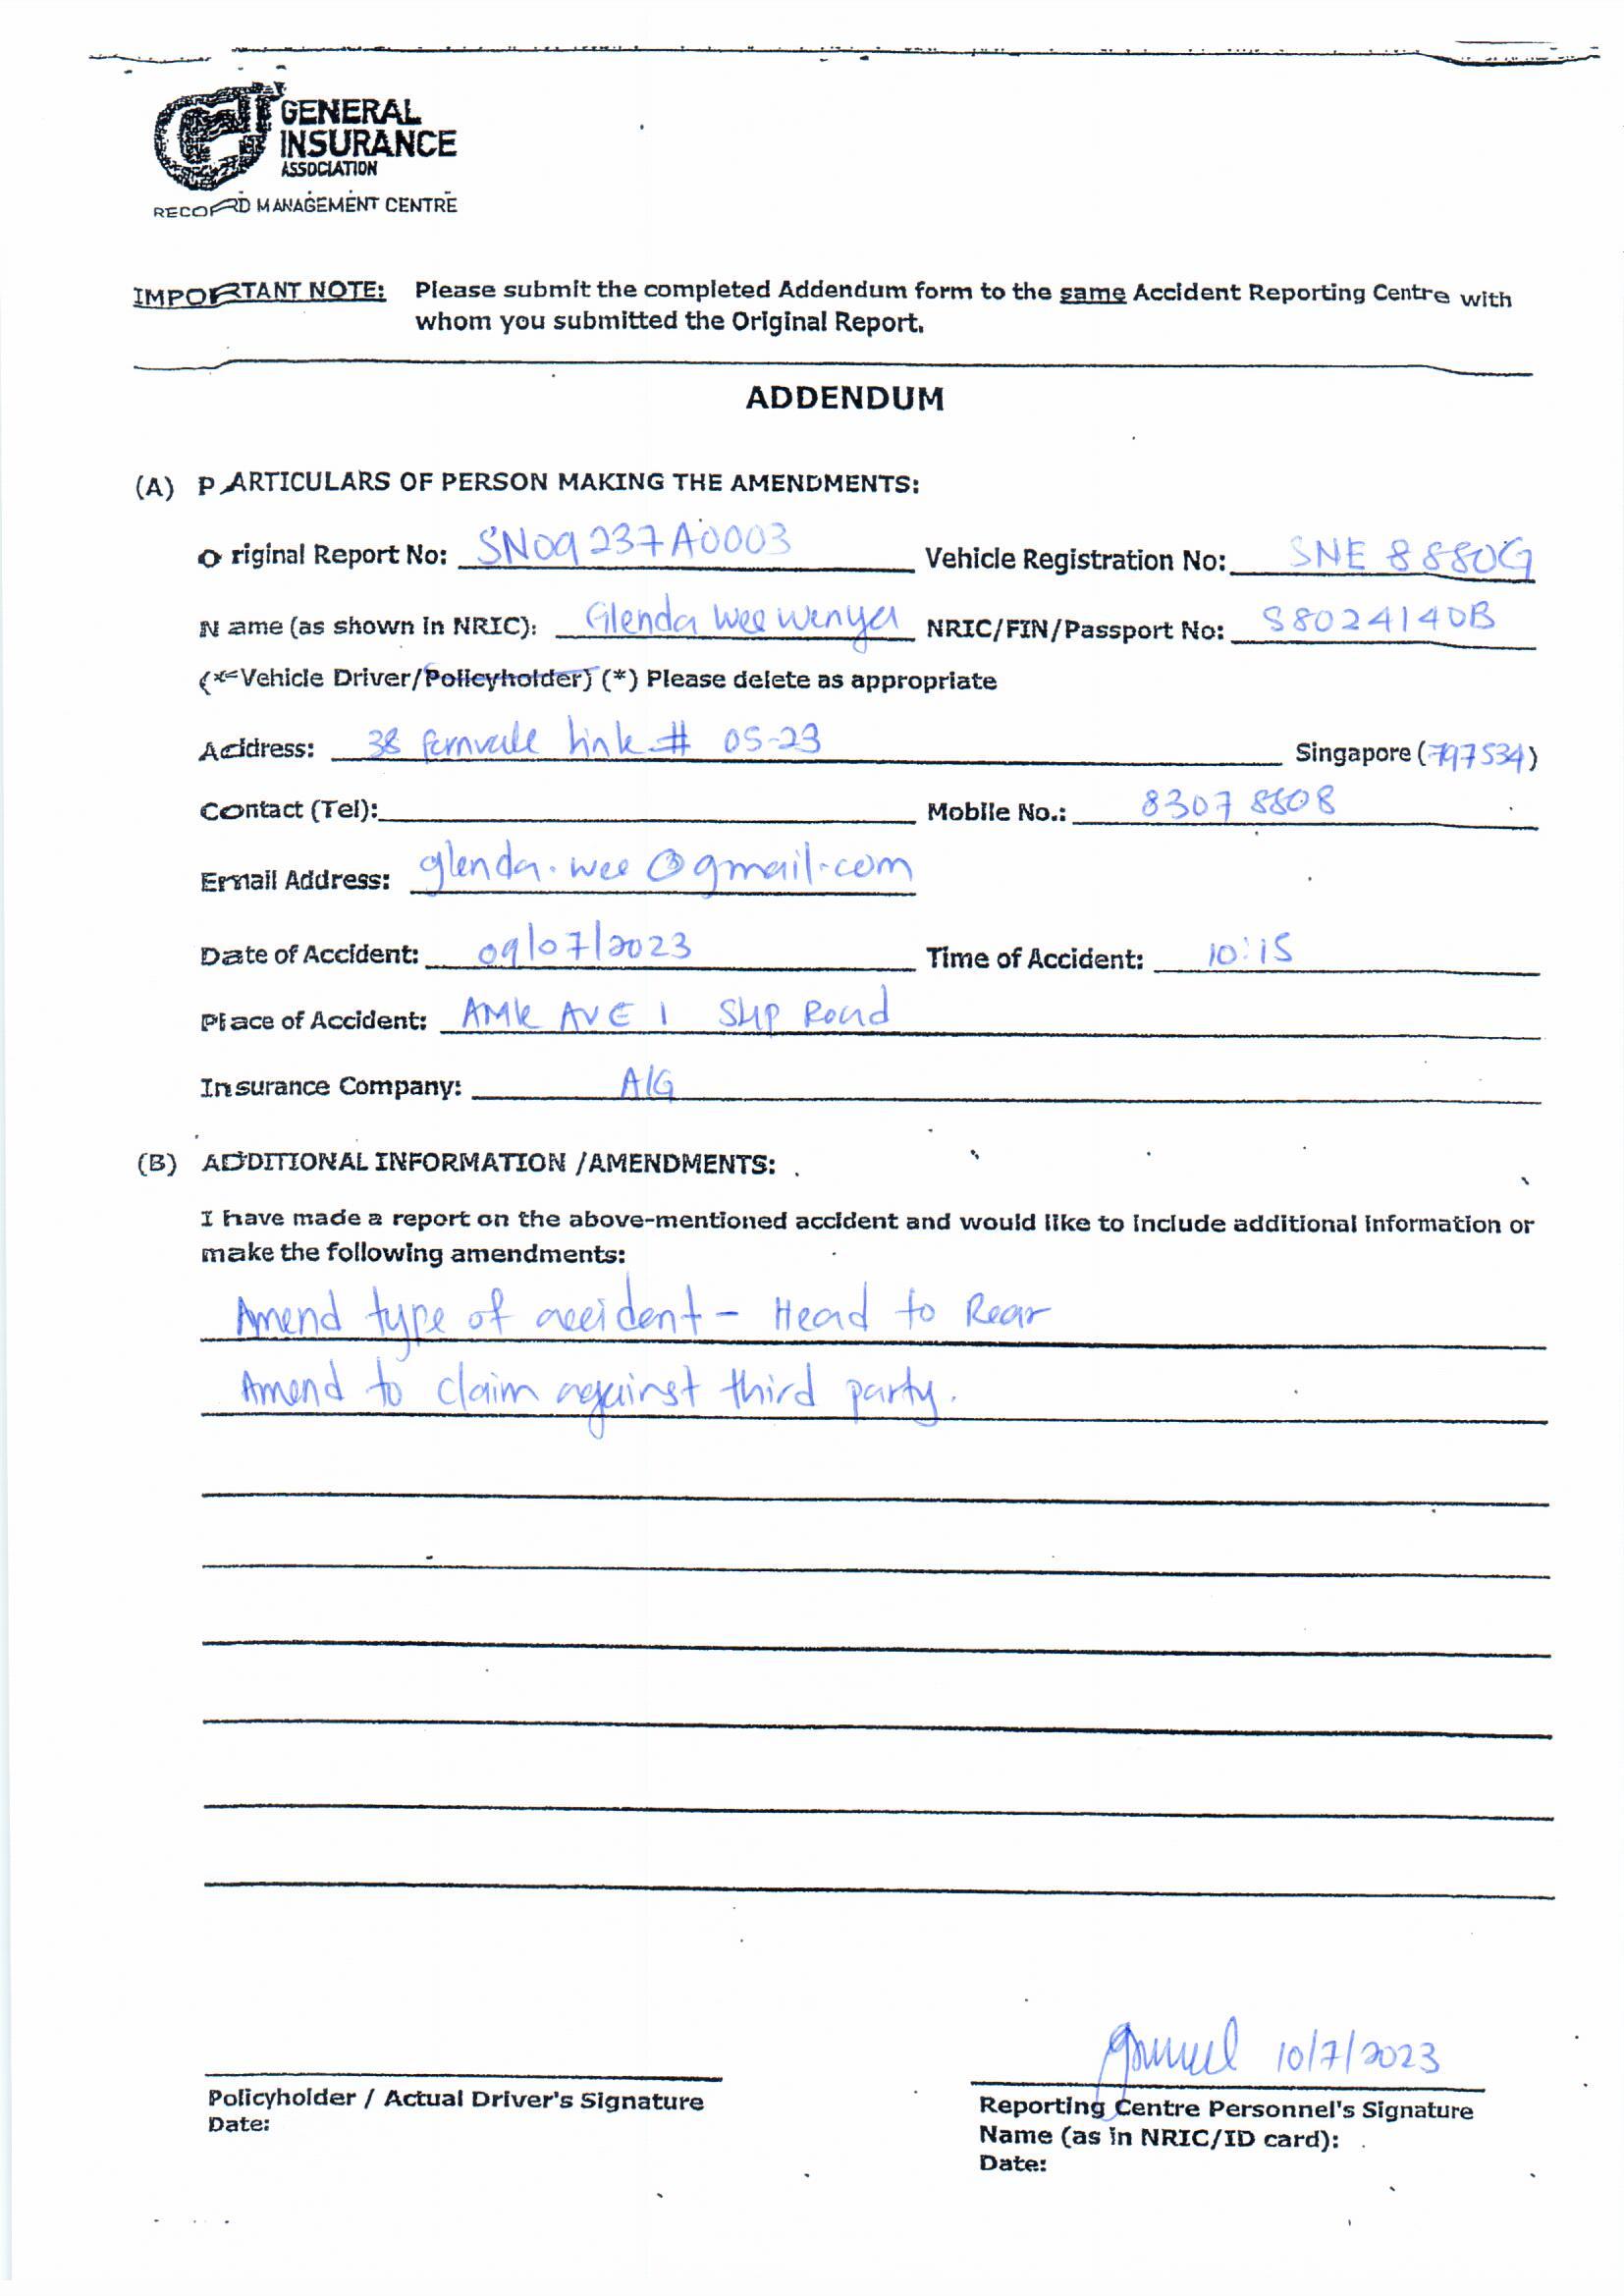 GENERAL
INSURANCE
ASSOCIATION
RECORD MANAGEMENT CENTRE
IMPORTANT NOTE: Please submit the completed Addendum form to the same Accident Reporting Centre with
whom you submitted the Original Report.
ADDENDUM
(A) PARTICULARS OF PERSON MAKING THE AMENDMENTS:
Original Report No: SN09237A0003 Vehicle Registration No: SNE 8880G
Name (as shown in NRIC): Glenda Wee Wenya NRIC/FIN/Passport No: S8024140B
(*Vehicle Driver/Policyholder) (*) Please delete as appropriate
Address: 38 fernvale link # 05-23 Singapore (797534)
Contact (Tel): Mobile No.: 8307 8808
Email Address: glenda.wee@gmail.com
Date of Accident: 09/07/2023 Time of Accident: 10:15
Place of Accident: AMK AVE 1 Slip Road
Insurance Company: AIG
(B) ADDITIONAL INFORMATION /AMENDMENTS:
I have made a report on the above-mentioned accident and would like to include additional information or
make the following amendments:
Amend type of accident - Head to Rear
Amend to claim against third party.
10/7/2023
Policyholder / Actual Driver's Signature
Date:
Reporting Centre Personnel's Signature
Name (as in NRIC/ID card):
Date: